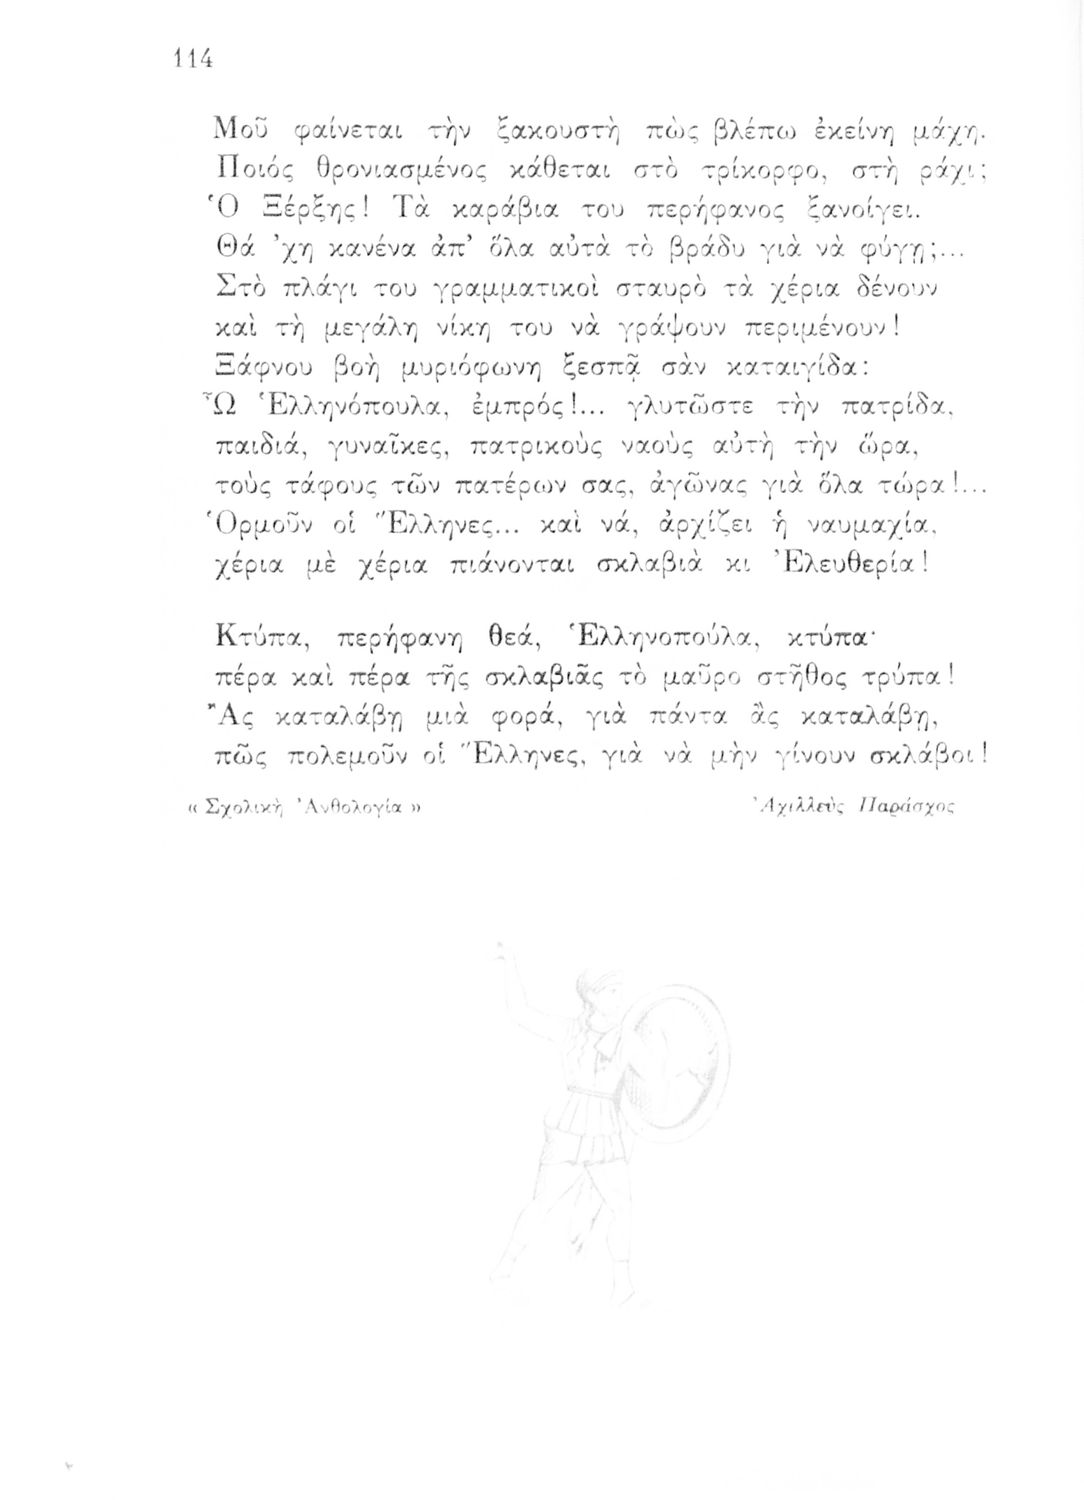 114
Μοῦ φαίνεται τὴν ξακουστὴ πὼς βλέπω ἐκείνη μάχη.
Ποιός θρονιασμένος κάθεται στὸ τρίκορφο, στὴ ράχι;
Ὁ Ξέρξης! Τὰ καράβια του περήφανος ξανοίγει.
Θά ’χη κανένα ἀπ’ ὅλα αὐτὰ τὸ βράδυ γιὰ νὰ φύγῃ;...
Στὸ πλάγι του γραμματικοὶ σταυρὸ τὰ χέρια δένουν
καὶ τὴ μεγάλη νίκη του νὰ γράψουν περιμένουν!
Ξάφνου βοὴ μυριόφωνη ξεσπᾷ σὰν καταιγίδα:
Ὦ Ἑλληνόπουλα, ἐμπρός!... γλυτῶστε τὴν πατρίδα,
παιδιά, γυναῖκες, πατρικοὺς ναοὺς αὐτὴ τὴν ὥρα,
τοὺς τάφους τῶν πατέρων σας, ἀγῶνας γιὰ ὅλα τώρα!...
Ὁρμοῦν οἱ Ἕλληνες... καὶ νά, ἀρχίζει ἡ ναυμαχία,
χέρια μὲ χέρια πιάνονται σκλαβιὰ κι Ἐλευθερία!
Κτύπα, περήφανη θεά, Ἑλληνοπούλα, κτύπα·
πέρα καὶ πέρα τῆς σκλαβιᾶς τὸ μαῦρο στῆθος τρύπα!
Ἂς καταλάβῃ μιὰ φορά, γιὰ πάντα ἂς καταλάβῃ,
πῶς πολεμοῦν οἱ Ἕλληνες, γιὰ νὰ μὴν γίνουν σκλάβοι!
« Σχολικὴ Ἀνθολογία » Ἀχιλλεὺς Παράσχος